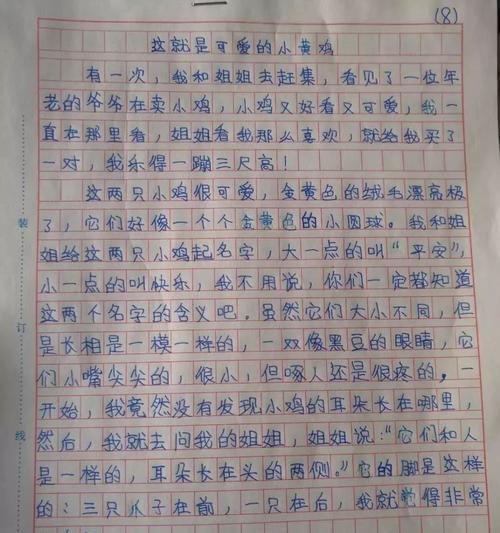 (8)
这就是可爱的小黄鸡
有一次，我和姐姐去赶集，看见了一位年
老的爷爷在卖小鸡，小鸡又好看又可爱，我一
直在那里看，姐姐看我那么喜欢，就给我买了
一对，我乐得一蹦三尺高！
这两只小鸡很可爱，金黄色的绒毛漂亮极
了，它们好像一个个金黄色的小圆球。我和姐
姐给这两只小鸡起名字，大一点的叫“平安”，
小一点的叫快乐，我不用说，你们一定都知道
这两个名字的含义吧。虽然它们大小不同，但
是长相是一模一样的，一双像黑豆的眼睛，它
们小嘴尖尖的，很小，但啄人还是很疼的。一
开始，我竟然没有发现小鸡的耳朵长在哪里，
然后，我就去问我的姐姐，姐姐说：“它们和人
是一样的，耳朵长在头的两侧。”它的脚是这样
的：三只爪子在前，一只在后，我就觉得非常
装
订
线